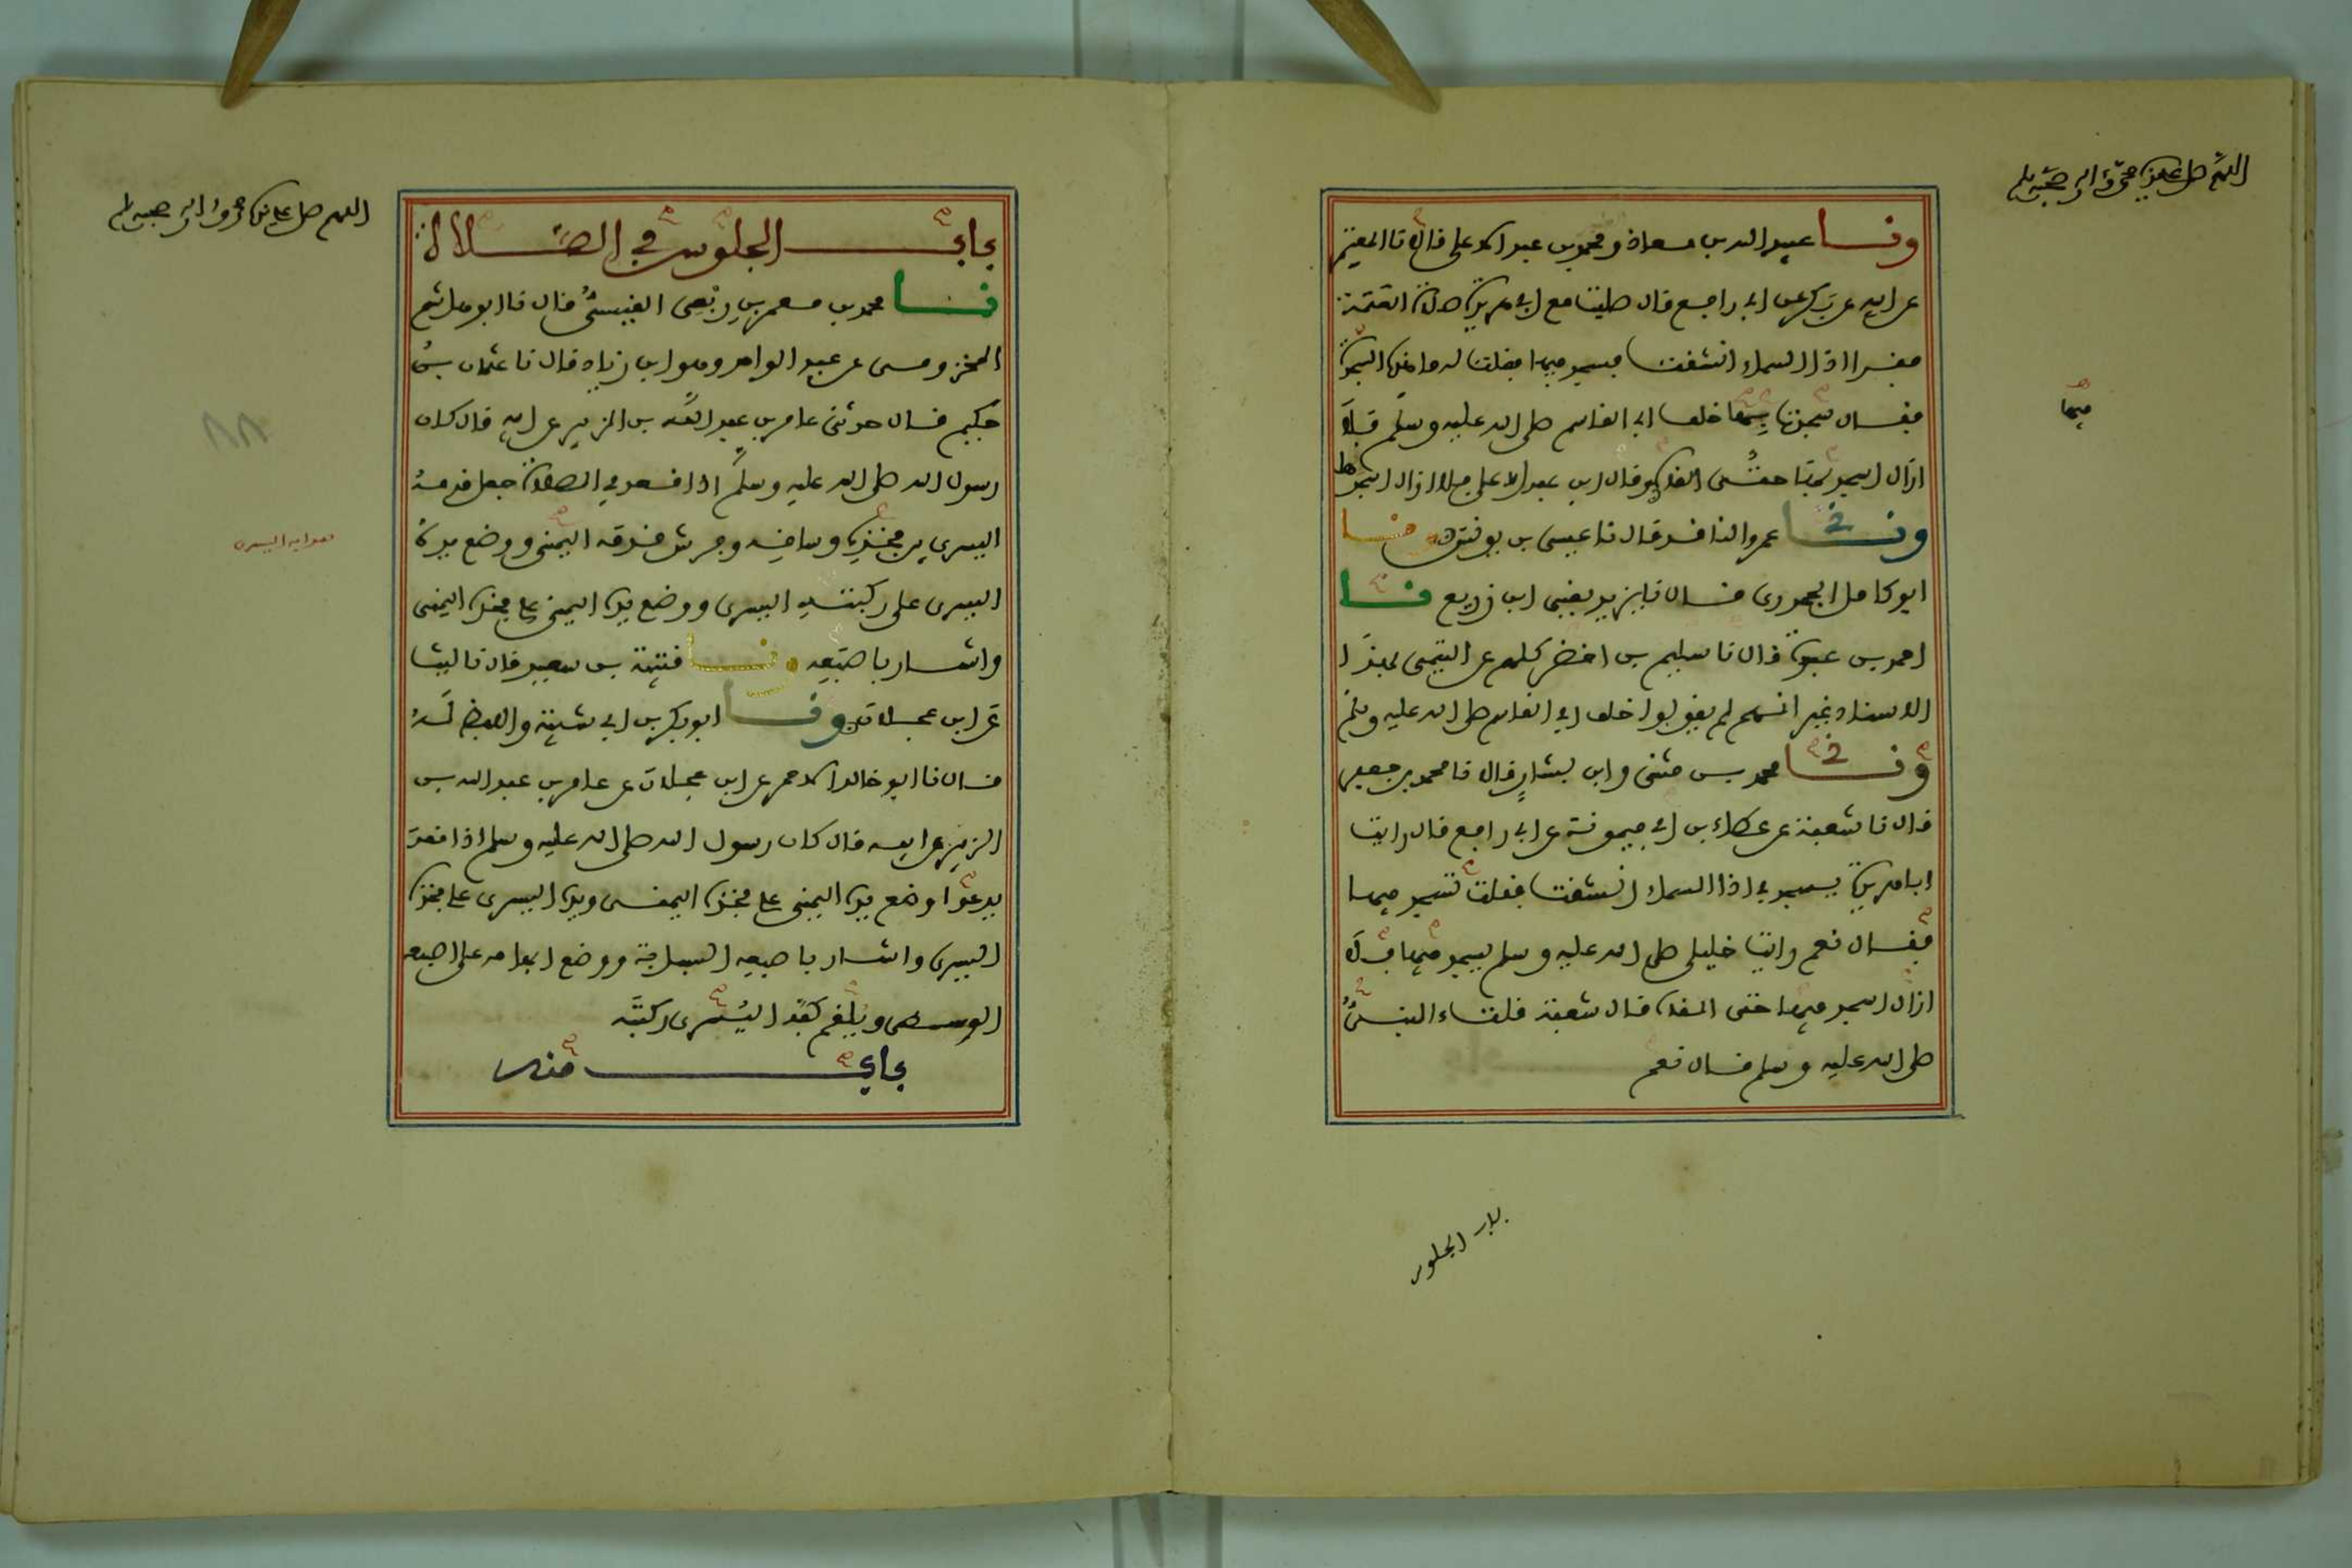 اللهم صل على سيدنا محمد وءاله وصحبه وسلم
ونا عبيد الله بن معاذ ومحمد بن عبد الاعلى قالا نا المعتمر
عن ابيه عن بكر عن ابي رافع قال صليت مع ابي هريرة صلاة العتمة
فقرا اذا السماء انشقت فسجد فيها فقلت له ما هذه السجدة
فقال سجدت بها خلف ابي القاسم صلى الله عليه وسلم فلا
ازال اسجد بها حتى القاه وقال ابن عبد الاعلى فلا ازال اسجدها
فيها
ونا عمرو الناقد قال نا عيسى بن يونس ونا
ابو كامل الجحدري قال نا يزيد يعني ابن زريع نا
احمد بن عبدة قال نا سليم بن اخضر كلهم عن التيمي بهذا
الاسناد غير انهم لم يقولوا خلف ابي القاسم صلى الله عليه وسلم
ونا محمد بن مثنى وابن بشار قال نا محمد بن جعفر
قال نا شعبة عن عطاء بن ابي ميمونة عن ابي رافع قال رايت
ابا هريرة يسجد في اذا السماء انشقت فقلت تسجد فيها
فقال نعم رايت خليلي صلى الله عليه وسلم يسجد فيها فلا
ازال اسجد فيها حتى القاه قال شعبة قلت النبي
صلى الله عليه وسلم قال نعم
باب الجلوس
اللهم صل على سيدنا محمد وءاله وصحبه وسلم
باب الجلوس في الصلاة
نا محمد بن معمر بن ربعي القيسي قال نا ابو هشام
المخزومي عن عبد الواحد وهو ابن زياد قال نا عثمان بن
حكيم قال حدثني عامر بن عبد الله بن الزبير عن ابيه قال كان
٨٨
رسول الله صلى الله عليه وسلم اذا قعد في الصلاة جعل قدمه
اليسرى بين فخذه وساقه وفرش قدمه اليمنى ووضع يده
اليسرى على ركبته اليسرى ووضع يده اليمنى على فخذه اليمنى
واشار باصبعه ونا قتيبة بن سعيد قال نا ليث
عن ابن عجلان ونا ابو بكر بن ابي شيبة واللفظ له
قال نا ابو خالد الاحمر عن ابن عجلان عن عامر بن عبد الله بن
الزبير عن ابيه قال كان رسول الله صلى الله عليه وسلم اذا قعد
يدعوا وضع يده اليمنى على فخذه اليمنى ويده اليسرى على فخذه
اليسرى واشار باصبعه السبابة ووضع ابهامه على اصبعه
الوسطى ويلقم كفه اليسرى ركبته
باب منه